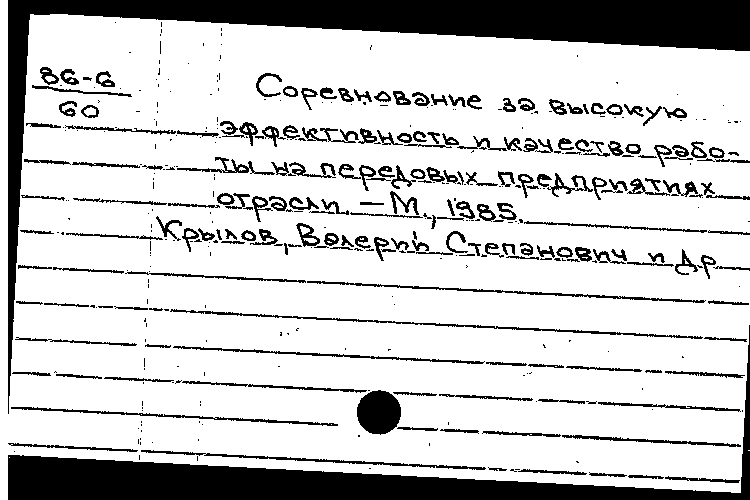 86-6
60
Соревнование за высокую
эффективность и качество рабо-
ты на передовых предприятиях
отрасли. — М., 1985.
Крылов, Валерий Степанович и др